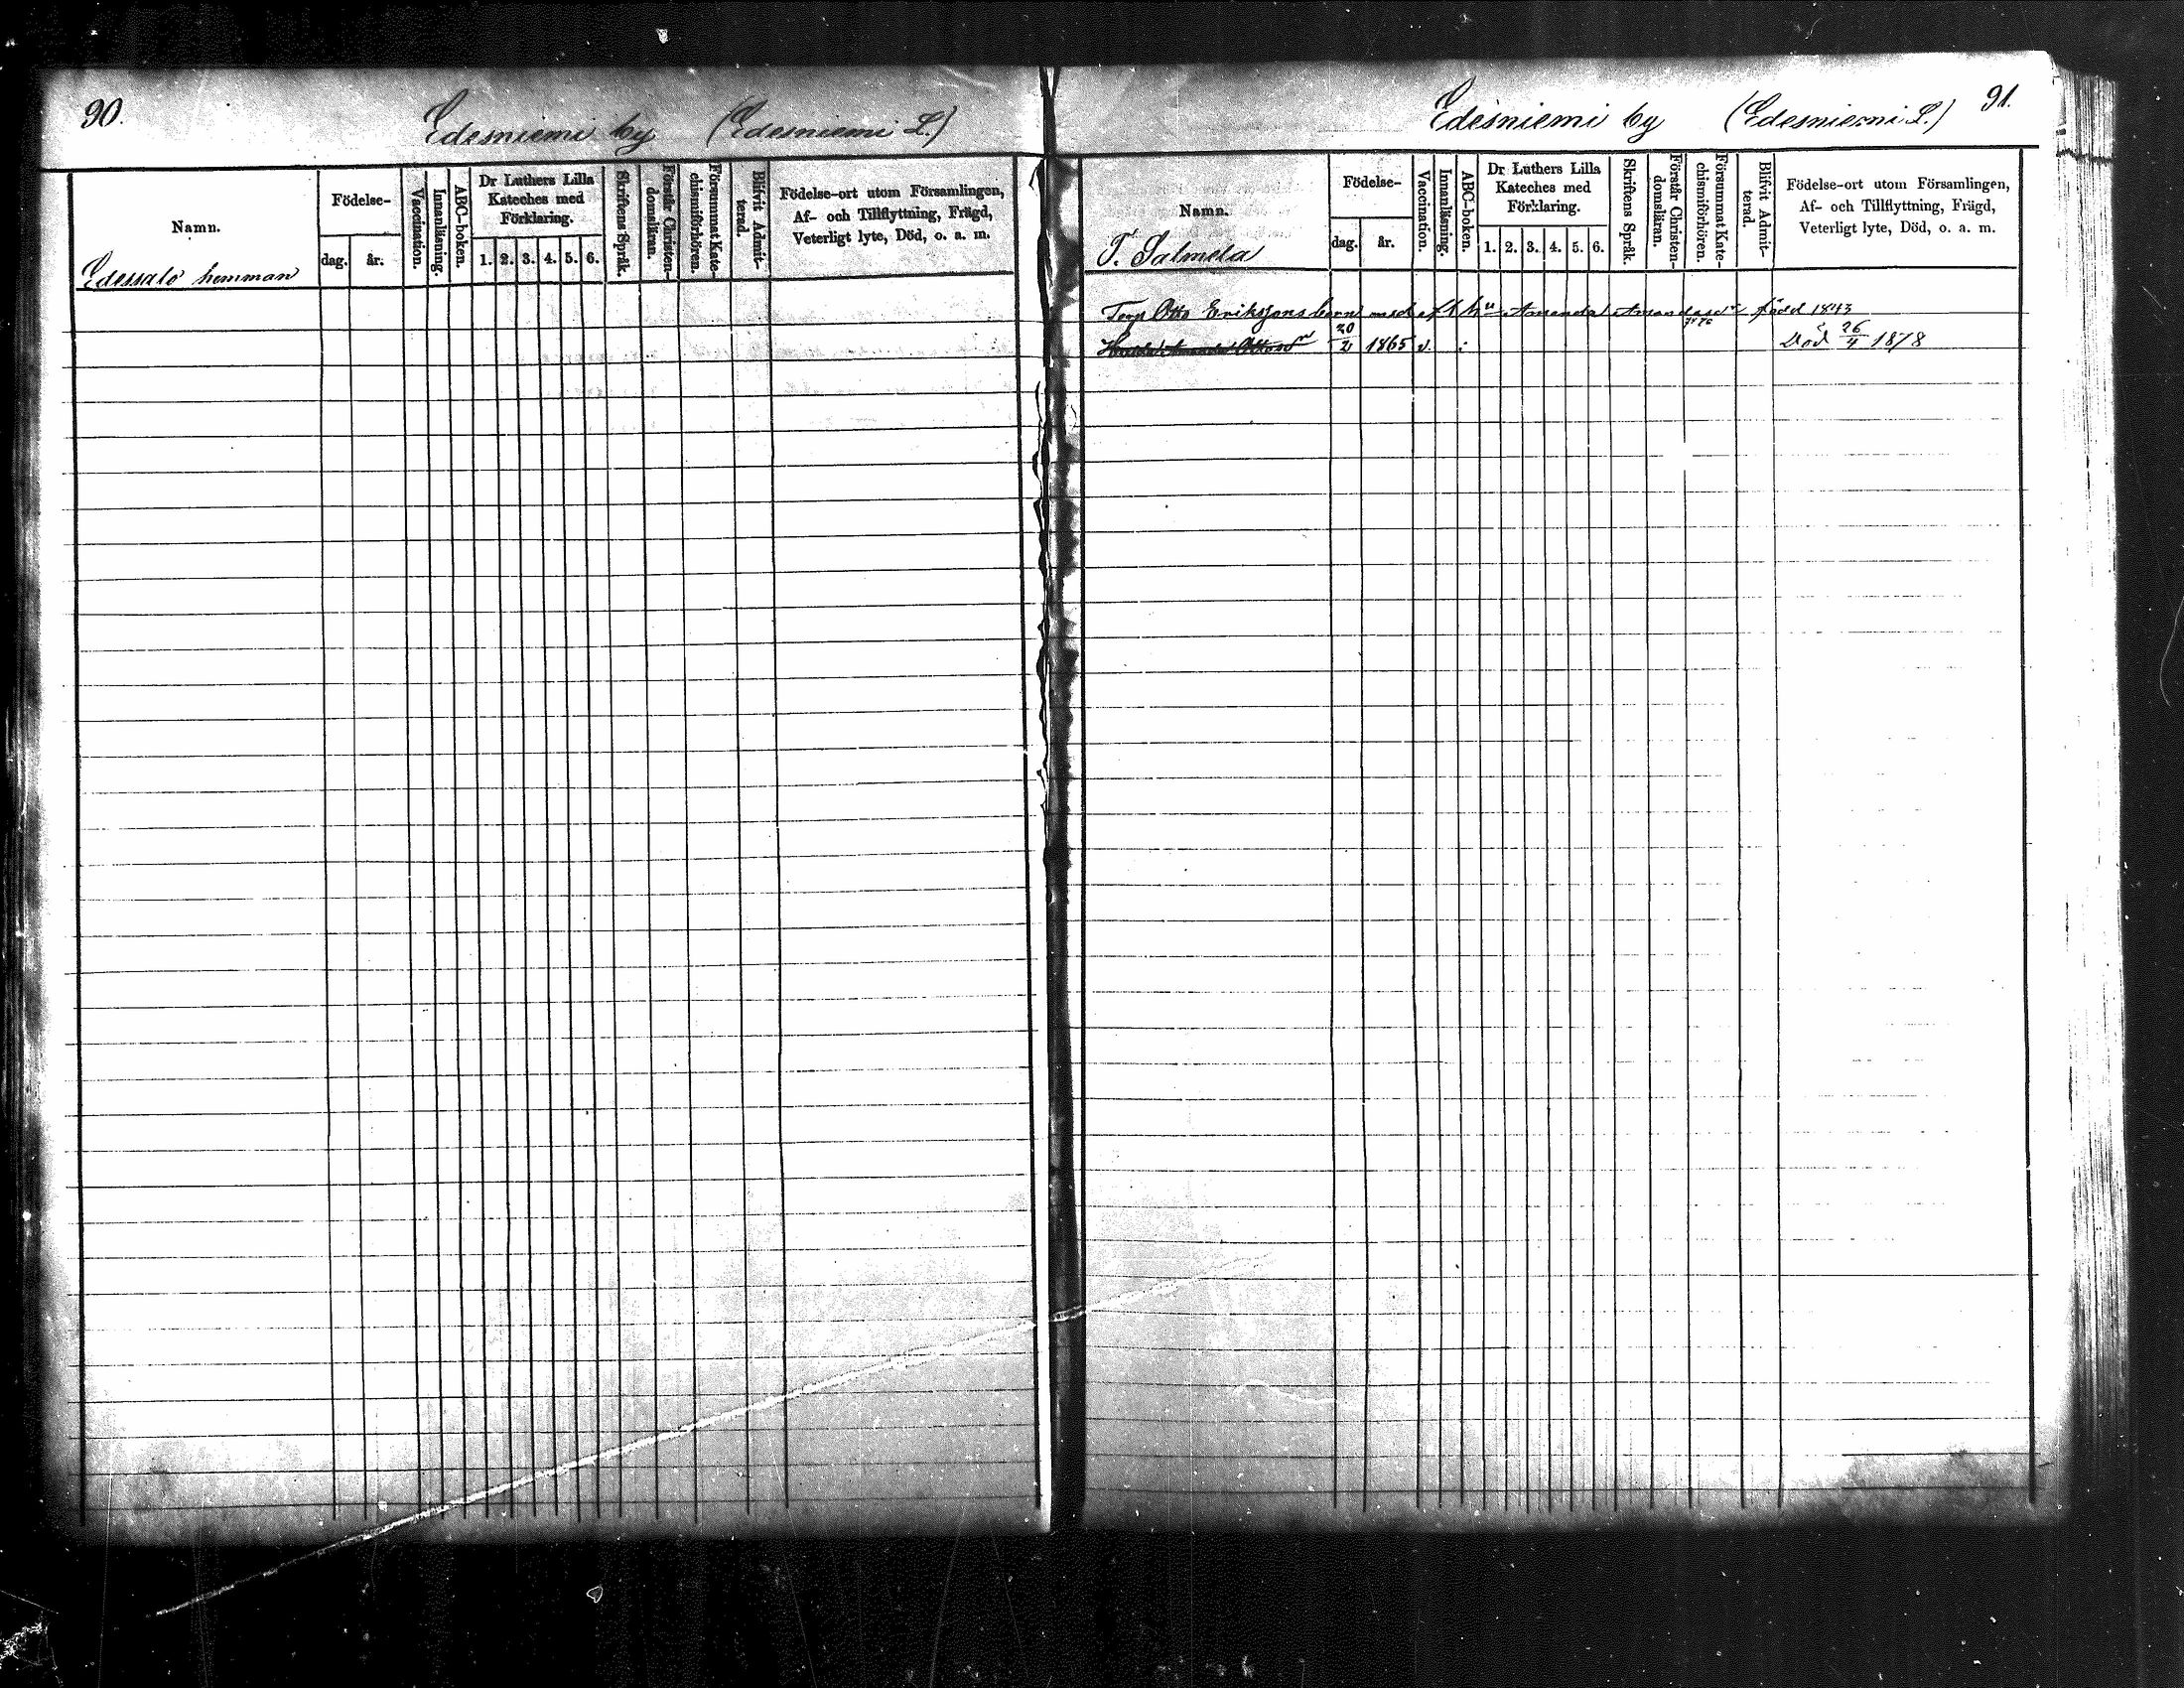 90.
Edesniemi by (Edesniemi L.)
Namn.
Födelse-
dag. år.
Vaccination.
Innanläsning.
ABC-boken.
Dr Luthers Lilla Kateches med Förklaring.
1. 2. 3. 4. 5. 6.
Skriftens Språk.
Förstår Christen-domsläran.
Försummat Kate-chismiförhören.
Blifvit Admit-terad.
Födelse-ort utom Församlingen,
Af- och Tillflyttning, Frägd,
Veterligt lyte, Död, o. a. m.
Edessalo hemman
91.
Edesniemi by (Edesniemi L.)
Namn.
Födelse-
dag. år.
Vaccination.
Innanläsning.
ABC-boken.
Dr Luthers Lilla Kateches med Förklaring.
1. 2. 3. 4. 5. 6.
Skriftens Språk.
Förstår Christen-domsläran.
Försummat Kate-chismiförhören.
Blifvit Admit-terad.
Födelse-ort utom Församlingen,
Af- och Tillflyttning, Frägd,
Veterligt lyte, Död, o. a. m.
T. Salmela
Torp Otto Erikssons barn med Amanda född 1843
Amanda Ottosdr 20/2 1865 v. Död 26/4 1878